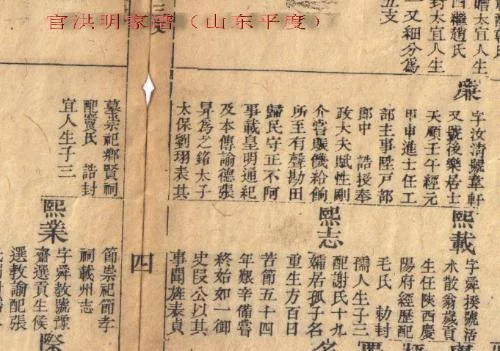 官洪明家譜（山东平度）
四繼趙氏
封太宜人生
一又細分為
五支
三支
廉
字汝清號葦軒
又號後樂居士
天順壬午經元
甲申進士任工
部主事陞戶部
郎中 誥授奉
政大夫賦性剛
介嘗賑饑給餉
所至有聲勘田
歸民守正不阿
事載皇明通紀
及本傳諭德張
昇為之銘太子
太保劉珝表其
墓崇祀鄉賢祠
配竇氏 誥封
宜人生子三
熙載
字舜揆號活
水散翁歲貢
生任陝西慶
陽府經歷配
毛氏 勅封
孺人生子三
熙志
配謝氏十九
孀居孤子名
重生方百日
苦節五十四
年艱辛備嘗
終始如一御
史段公以其
事聞旌表貞
四
節崇祀節孝
祠載州志
熙業
字舜教號豫
齋選貢生侯
選教諭配張